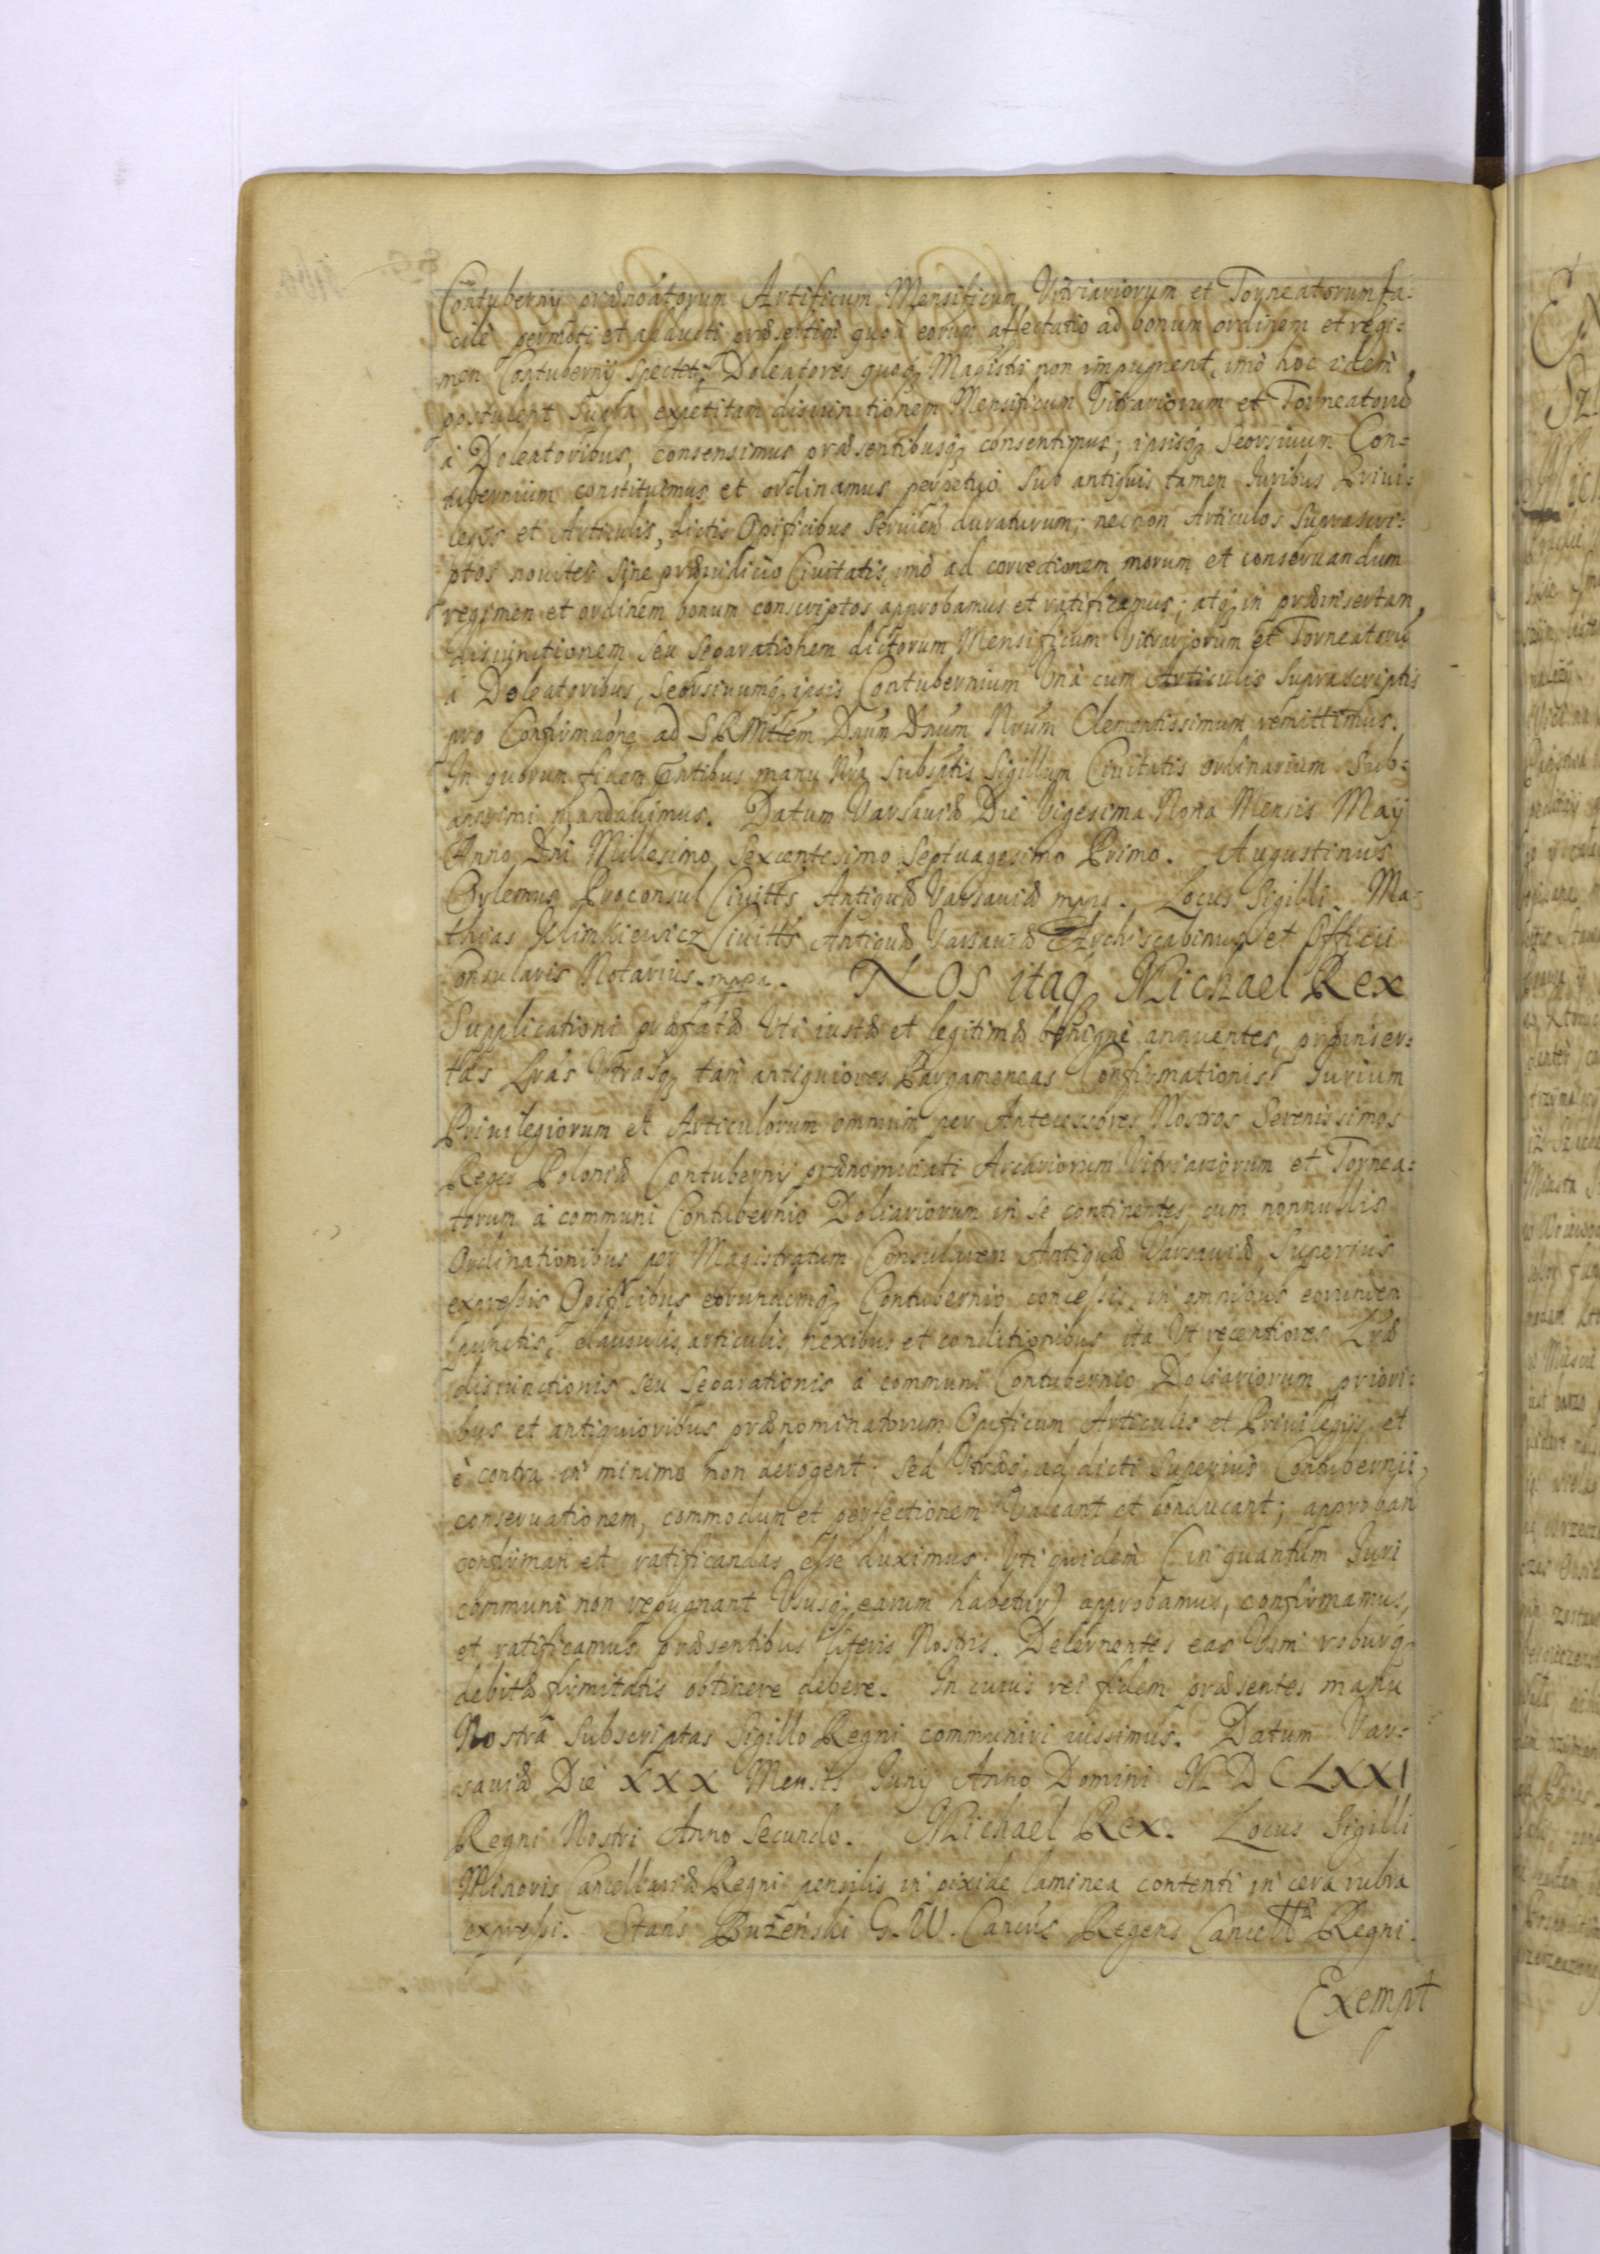 Contubernij prænoatorum Artificum Mensificum Vitriariorum et Torneatorum fa-
cile permoti et adducti præsertim quod eorum affectatio ad bonum ordinem et regi-
men Contubernij spectet, Doleatores quoq Magistri non impugnent, imò hoc idem
postulent Supra expetitam disiunctionem Mensificum Vitrariorum et Torneatorū
à Doleatoribus, consensimus præsentibusq consentimus; ipsisq Seorsiuum Con-
tubernium constituimus et ordinamus perpetuò Sub antiquis tamen Juribus Priui-
legijs et Articulis, dictis Opificibus Seruien duraturum; necnon Articulos Suprascri-
ptos nouiter Sine præiudicio Ciuitatis, imò ad correctionem morum et conseruandum
regimen et ordinem bonum conscriptos approbamus et ratificamus; atq in præinsertam
disiunctionem Seu Separationem dictorum Mensificum Vitrariorum et Torneatorū
à Doleatoribus, Seorsiuumq ipsis Contubernium Vnà cum Articulis Suprascriptis
pro Confirmaōne ad SRMttem Dnum Dnum Nrum Clementissimum remittimus.
In quorum fidem Pntibus manu Nra Subsptis Sigillum Ciuitatis ordinarium Sub-
apprimi mandauimus. Datum Varsauiæ Die Vigesima Nona Mensis Maij
Anno Dni Millesimo Sexcentesimo Septuagesimo Primo. Augustinus
Proconsul Ciuittis Antiquæ Varsauiæ mpp. Locus Sigilli. Ma-
thias Klimkiewicz Ciuittis Antiquæ Varsauiæ Archiscabinus et Officii
Consularis Notarius mppa. NOS itaq Michael Rex
Supplicationi præfatæ Vti iustæ et legitimæ benignè annuentes, præinser-
tas Lras Vtrasq tam antiquiores Pargameneas Confirmationis Jurium
Priuilegiorum et Articulorum omnium per Antecessores Nostros Serenissimos
Reges Poloniæ Contubernij prænominati Arcariorum Vitriariorum et Tornea-
torum à communi Contubernio Doliariorum in se continentes, cum nonnullis
Ordinationibus per Magistratum Consularem Antiquæ Varsauiæ Superius
expressis Opificibus eorundemq Contubernio concessis, in omnibus eorundem
punctis, clausulis, articulis, nexibus et conditionibus ita Vt recentiores Lræ
disiunctionis seu Separationis à communi Contubernio Doliariorum priori-
bus et antiquioribus prænominatorum Opificum Articulis et Priuilegijs et
è contra in minimo non derogent; Sed Vtræq ad dicti Superius Contubernii
conseruationem, commodum et perfectionem Valeant et conducant; approban
confirman et ratificandas esse duximus. Vti quidem (in quantum Juri
communi non repugnant Vsusq earum habetur) approbamus, confirmamus,
et ratificamus præsentibus literis Nostris. Decernentes eas Vim roburq
debitæ firmitatis obtinere debere. In cuius rei fidem præsentes manu
Nostra Subscriptas Sigillo Regni communiri iussimus. Datum Var-
sauiæ Die XXX Mensis Junij Anno Domini MDCLXXI
Regni Nostri Anno Secundo. Michael Rex. Locus Sigilli
Minoris Cancellariæ Regni pensilis in pixide laminea contenti in cera rubra
expressi. Stans Bużeński G. W. Regens Regni.
Exempt